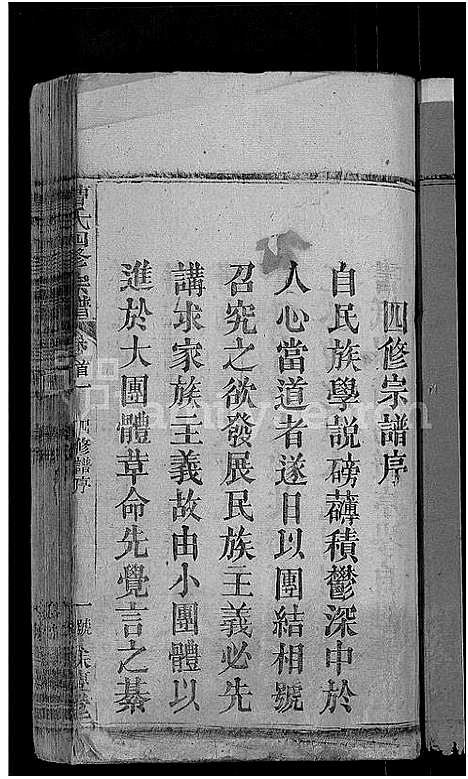 四修宗譜序
自民族學說磅礴積鬱深中於
人心當道者遂日以團結相號
召究之欲發展民族主義必先
講求家族主義故由小團體以
進於大團體草命先覺言之綦
曹氏四修宗譜 卷首一 四修譜序 一號